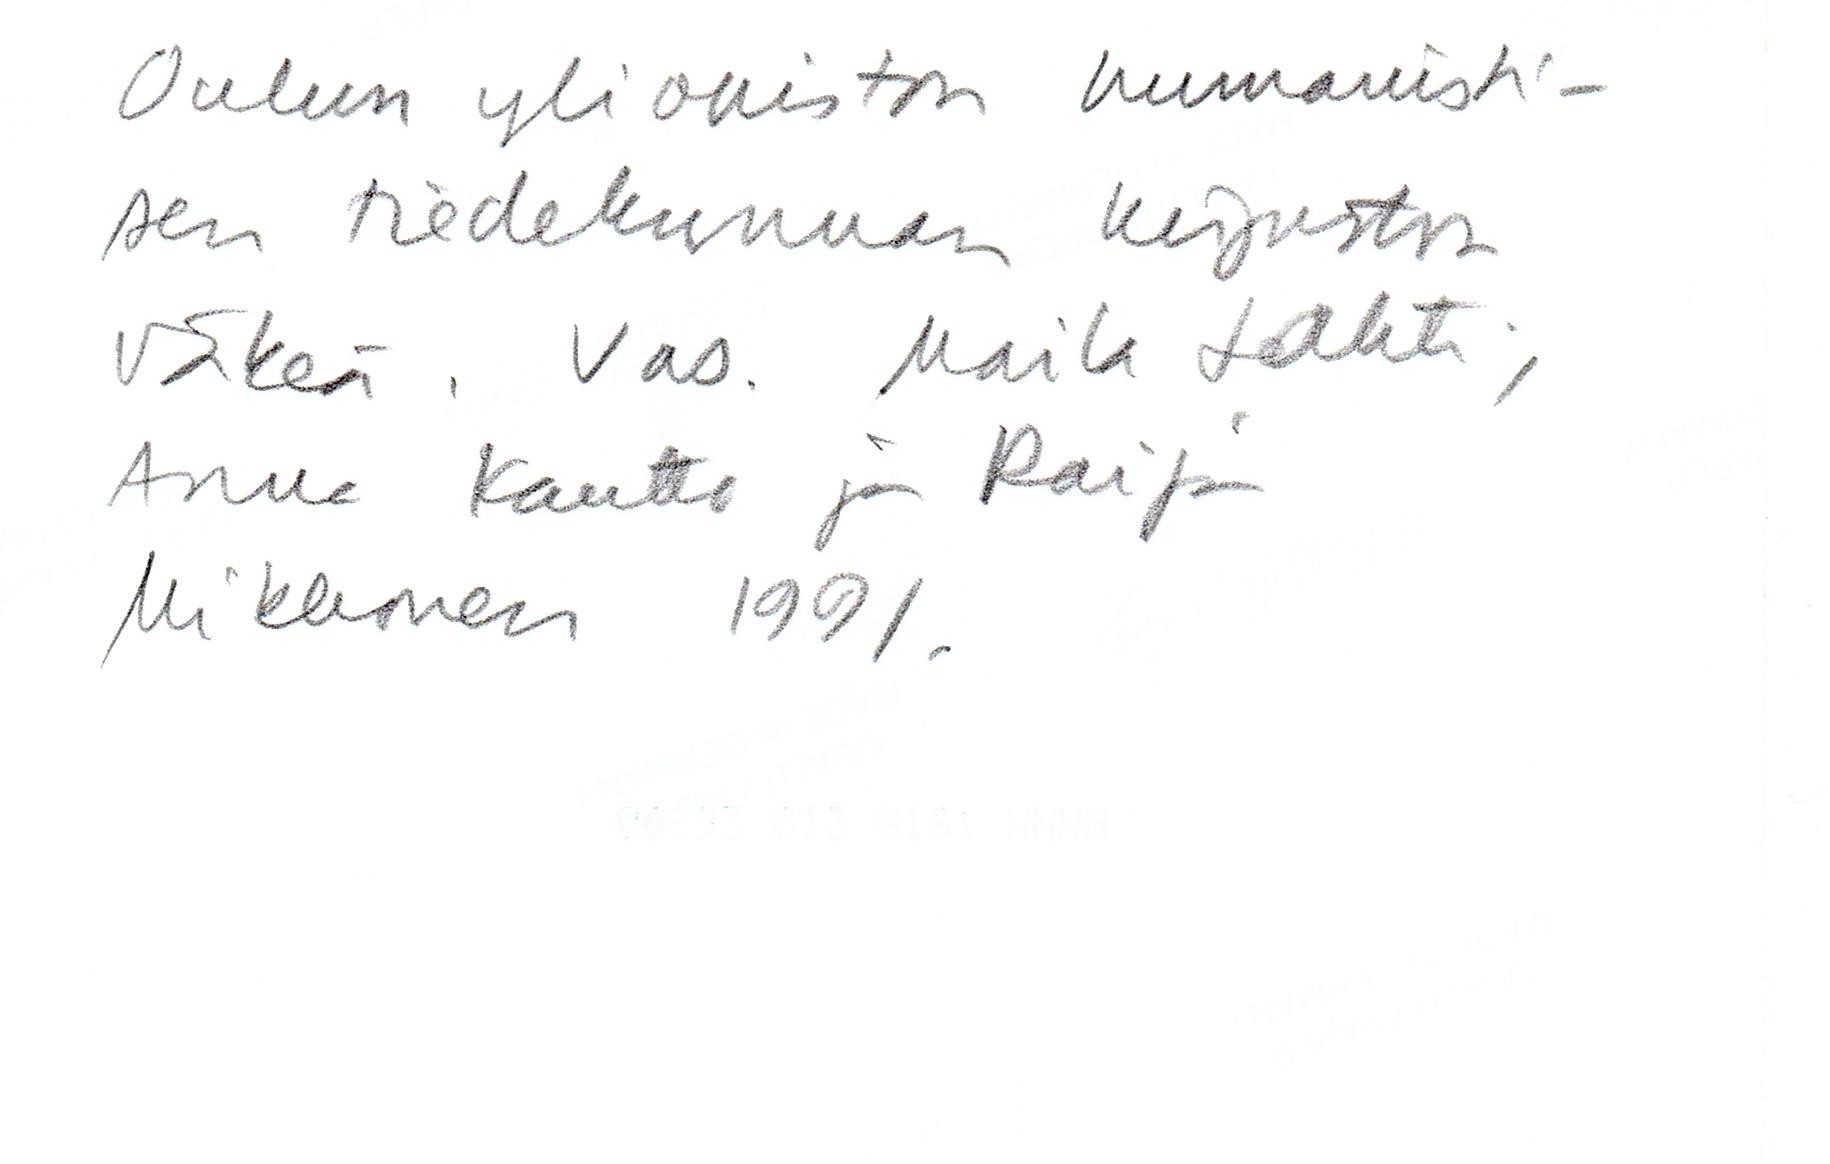 Oulun yliopiston humanisti-
sen tiedekunnan kirjaston
väkeä. Vas. Maila Lahti,
Anna Kautto ja Raija
Mikkonen 1991.